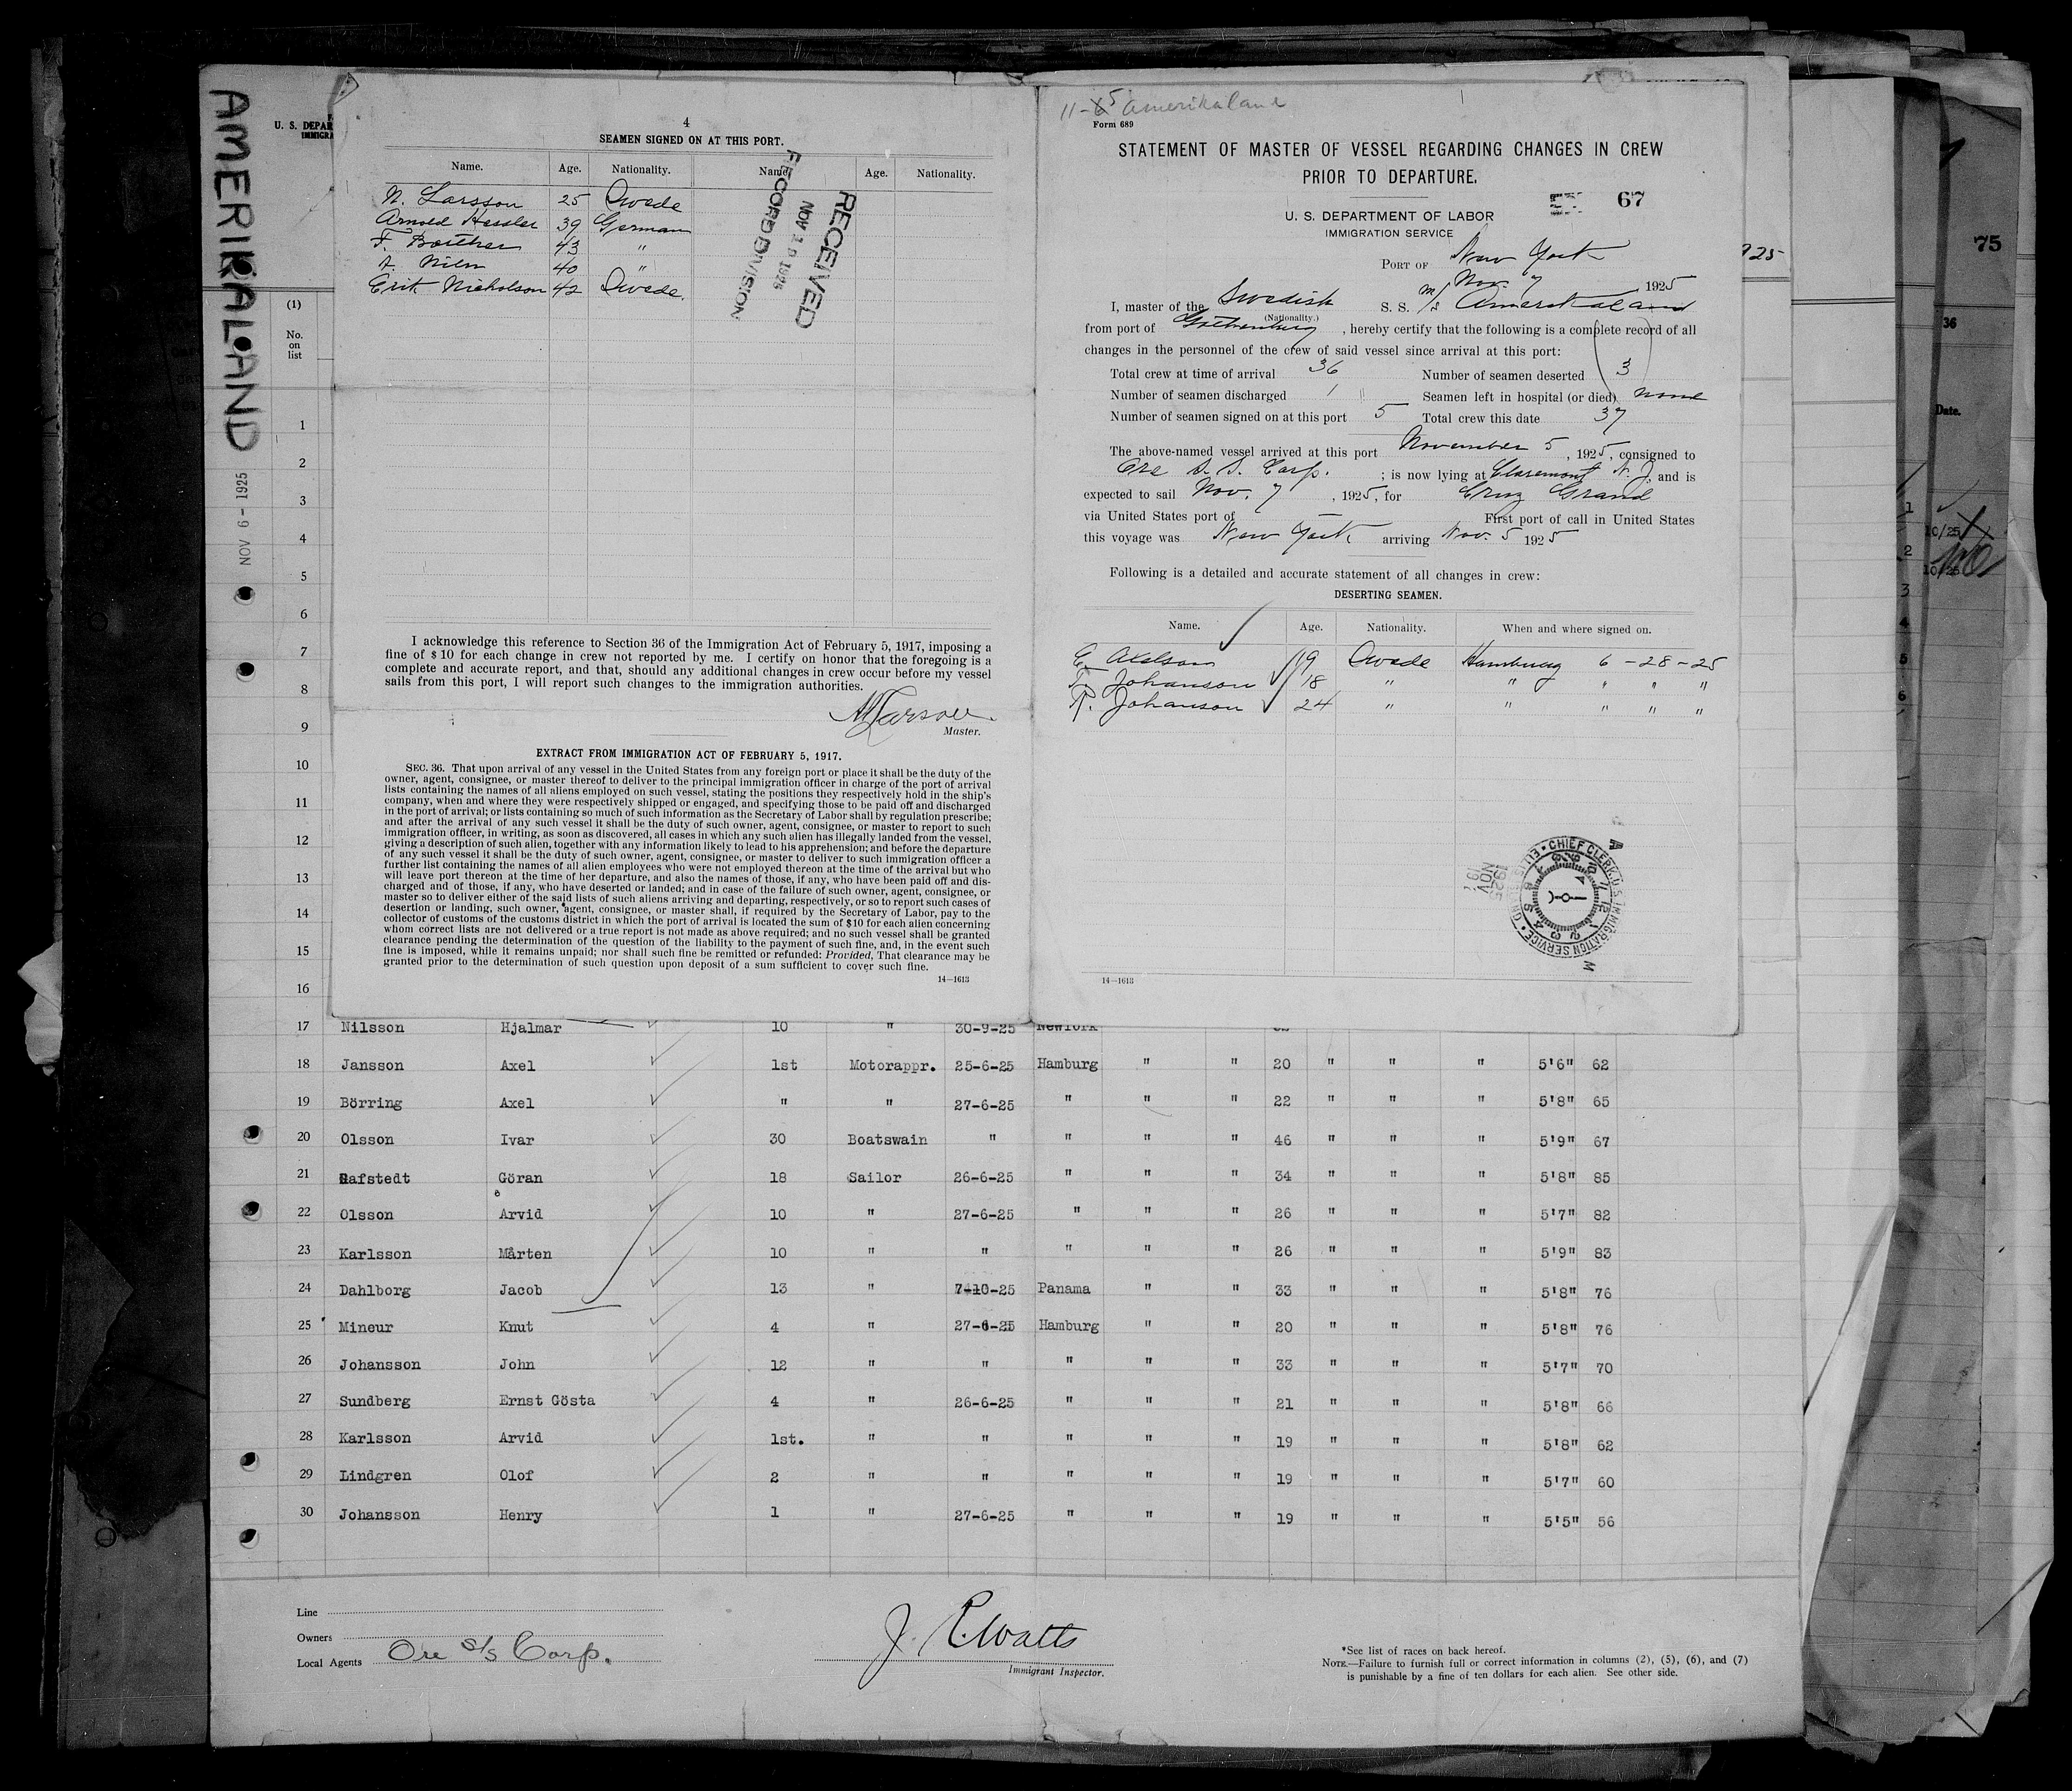 AMERIKALAND
NOV 6 - 1925
U. S. DEPAR
IMMIGRA
(1)
No.
on
list
1
2
3
4
5
6
7
8
9
10
11
12
13
14
15
16
4
SEAMEN SIGNED ON AT THIS PORT.
Name. Age. Nationality. Name. Age. Nationality.
N. Larsson 25 Swede
Arnold Hessler 39 German
F. 43 "
40 "
Erik Nicholson 42 Swede.
RECEIVED
NOV 10 1925
RECORD DIVISION
I acknowledge this reference to Section 36 of the Immigration Act of February 5, 1917, imposing a
fine of $10 for each change in crew not reported by me. I certify on honor that the foregoing is a
complete and accurate report, and that, should any additional changes in crew occur before my vessel
sails from this port, I will report such changes to the immigration authorities.
Master.
EXTRACT FROM IMMIGRATION ACT OF FEBRUARY 5, 1917.
SEC. 36. That upon arrival of any vessel in the United States from any foreign port or place it shall be the duty of the
owner, agent, consignee, or master thereof to deliver to the principal immigration officer in charge of the port of arrival
lists containing the names of all aliens employed on such vessel, stating the positions they respectively hold in the ship's
company, when and where they were respectively shipped or engaged, and specifying those to be paid off and discharged
in the port of arrival; or lists containing so much of such information as the Secretary of Labor shall by regulation prescribe;
and after the arrival of any such vessel it shall be the duty of such owner, agent, consignee, or master to report to such
immigration officer, in writing, as soon as discovered, all cases in which any such alien has illegally landed from the vessel,
giving a description of such alien, together with any information likely to lead to his apprehension; and before the departure
of any such vessel it shall be the duty of such owner, agent, consignee, or master to deliver to such immigration officer a
further list containing the names of all alien employees who were not employed thereon at the time of the arrival but who
will leave port thereon at the time of her departure, and also the names of those, if any, who have been paid off and dis-
charged and of those, if any, who have deserted or landed; and in case of the failure of such owner, agent, consignee, or
master so to deliver either of the said lists of such aliens arriving and departing, respectively, or so to report such cases of
desertion or landing, such owner, agent, consignee, or master shall, if required by the Secretary of Labor, pay to the
collector of customs of the customs district in which the port of arrival is located the sum of $10 for each alien concerning
whom correct lists are not delivered or a true report is not made as above required; and no such vessel shall be granted
clearance pending the determination of the question of the liability to the payment of such fine, and, in the event such
fine is imposed, while it remains unpaid; nor shall such fine be remitted or refunded: Provided, That clearance may be
granted prior to the determination of such question upon deposit of a sum sufficient to cover such fine.
14—1613
11-5 Amerikaland
Form 689
STATEMENT OF MASTER OF VESSEL REGARDING CHANGES IN CREW
PRIOR TO DEPARTURE.
67
U. S. DEPARTMENT OF LABOR
IMMIGRATION SERVICE
PORT OF New York
Nov. 7 1925
I, master of the Swedish S. S. m/s Amerikaland
(Nationality.)
from port of Gothenburg, hereby certify that the following is a complete record of all
changes in the personnel of the crew of said vessel since arrival at this port:
Total crew at time of arrival 36 Number of seamen deserted 3
Number of seamen discharged 1 Seamen left in hospital (or died) none
Number of seamen signed on at this port 5 Total crew this date 37
The above-named vessel arrived at this port November 5, 1925, consigned to
Ore S. S. Corp. ; is now lying at Claremont N. J., and is
expected to sail Nov. 7, 1925, for Cruz Grand
via United States port of First port of call in United States
this voyage was New York arriving Nov. 5 1925
Following is a detailed and accurate statement of all changes in crew:
DESERTING SEAMEN.
Name. Age. Nationality. When and where signed on.
E. Axelson 19 Swede Hamburg 6-28-25
T. Johanson 18 " " " " "
R. Johanson 24 " " " " "
CHIEF CLERK, U.S. IMMIGRATION SERVICE
NOV
1925
14—1613
17 Nilsson Hjalmar 10 " 30-9-25 NewYork
18 Jansson Axel 1st Motorappr. 25-6-25 Hamburg " " 20 " " " 5'6" 62
19 Börring Axel " " 27-6-25 " " " 22 " " " 5'8" 65
20 Olsson Ivar 30 Boatswain " " " " 46 " " " 5'9" 67
21 Rafstedt Göran 18 Sailor 26-6-25 " " " 34 " " " 5'8" 85
22 Olsson Arvid 10 " 27-6-25 " " " 26 " " " 5'7" 82
23 Karlsson Mårten 10 " " " " " 26 " " " 5'9" 83
24 Dahlborg Jacob 13 " 7-10-25 Panama " " 33 " " " 5'8" 76
25 Mineur Knut 4 " 27-6-25 Hamburg " " 20 " " " 5'8" 76
26 Johansson John 12 " " " " " 33 " " " 5'7" 70
27 Sundberg Ernst Gösta 4 " 26-6-25 " " " 21 " " " 5'8" 66
28 Karlsson Arvid 1st. " " " " " 19 " " " 5'8" 62
29 Lindgren Olof 2 " " " " " 19 " " " 5'7" 60
30 Johansson Henry 1 " 27-6-25 " " " 19 " " " 5'5" 56
Line
Owners
Local Agents Ore S/S Corp.
J. P. Watts
Immigrant Inspector.
*See list of races on back hereof.
NOTE.—Failure to furnish full or correct information in columns (2), (5), (6), and (7)
is punishable by a fine of ten dollars for each alien. See other side.
925
75
36
Date.
1
10/25
2
10/25
3
4
5
6